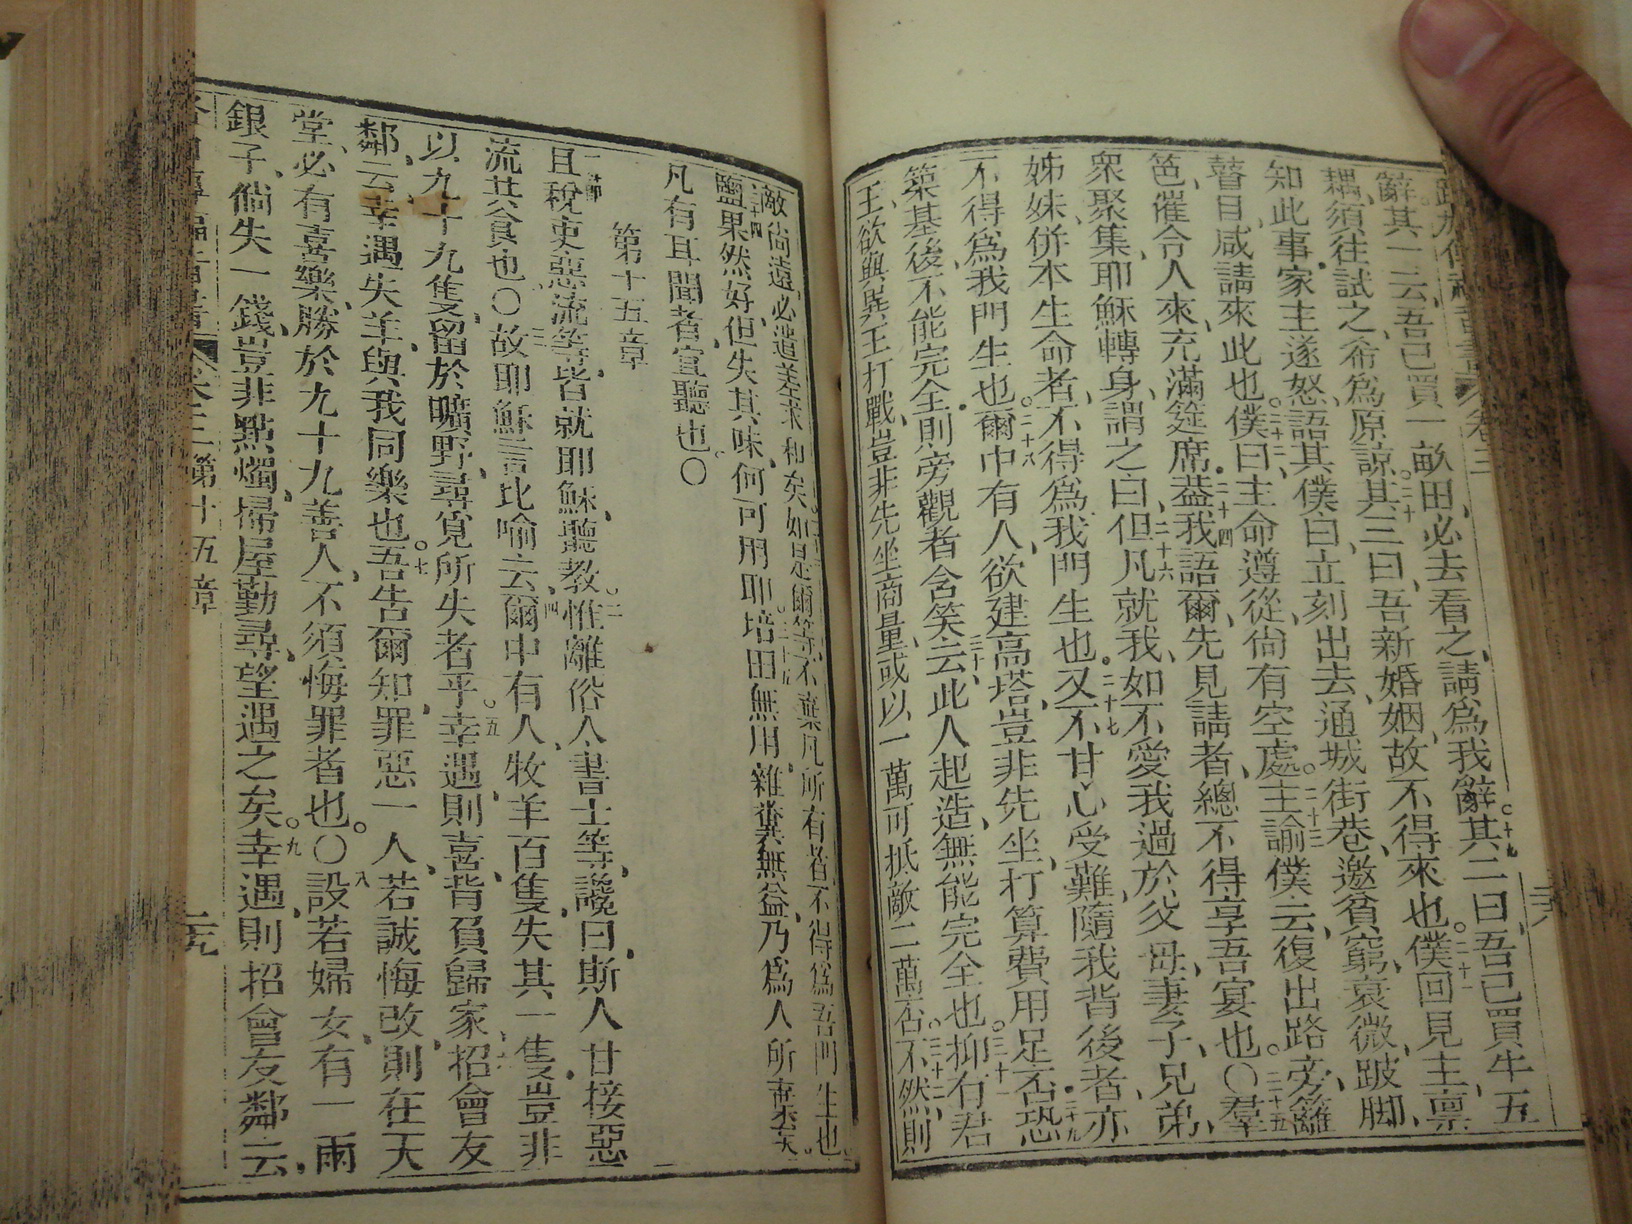 辭其一云吾已買一畝田必去看之請爲我辭其二曰吾已買牛五
耦須往試之希爲原諒其三曰吾新婚姻故不得來也僕回見主禀
知此事家主遂怒語其僕曰立刻出去通城街巷邀貧窮衰微跛脚
瞽目咸請來此也僕曰主命遵從尙有空處主諭僕云復出路旁籬
笆催令人來充滿筵席葢我語爾先見請者總不得享吾宴也〇羣
衆聚集耶穌轉身謂之曰但凡就我如不愛我過於父母妻子兄弟
姊妹併本生命者不得爲我門生也又不甘心受難隨我背後者亦
不得爲我門生也爾中有人欲建高塔豈非先坐打算費用足否恐
築基後不能完全則旁觀者含笑云此人起造無能完全也抑有君
王欲與異王打戰豈非先坐商量或以一萬可抵敵二萬否不然則
敵尙遠必遣差求和矣如是爾等不棄凡所有者不得爲吾門生也
鹽果然好但失其味何可用耶培田無用雜糞無益乃爲人所棄矣
凡有耳聞者宜聽也〇
第十五章
且稅吏惡流等皆就耶穌聽教惟離俗人書士等讒曰斯人甘接惡
流共食也〇故耶穌言比喻云爾中有人牧羊百隻失其一隻豈非
以九十九隻留於曠野尋覓所失者乎幸遇則喜背負歸家招會友
鄰云幸遇失羊與我同樂也吾告爾知罪惡一人若誠悔改則在天
堂必有喜樂勝於九十九善人不須悔罪者也〇設若婦女有一兩
銀子倘失一錢豈非點燭掃屋勤尋望遇之矣幸遇則招會友鄰云
第十五章